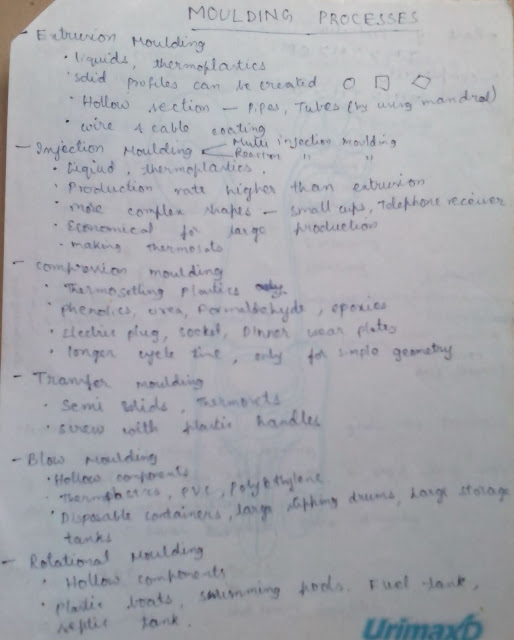 MOULDING PROCESSES
- Extrusion Moulding
• liquids, thermoplastics
• solid profiles can be created
• Hollow section - Pipes, Tubes (by using mandral)
• wire & cable coating
- Injection Moulding Multi injection moulding
Reaction " "
• Liquid, thermoplastics.
• Production rate higher than extrusion
• more complex shapes - small cups, Telephone receiver
• Economical for large production
- making thermosets
- compression moulding
• Thermosetting plastics
• phenolics, urea, Formaldehyde, epoxies
• Electric plug, socket, Dinner wear plates
• longer cycle time, only for simple geometry
- Transfer moulding
• Semi solids, Thermosets
• screw with plastic handles
- Blow Moulding
• Hollow components
• Thermoplastics, PVC, Polyethylene
• Disposable containers, large shipping drums, large storage
tanks
- Rotational Moulding
• Hollow components
• plastic boats, swimming pools. Fuel tank,
septic tank.
Urimax D